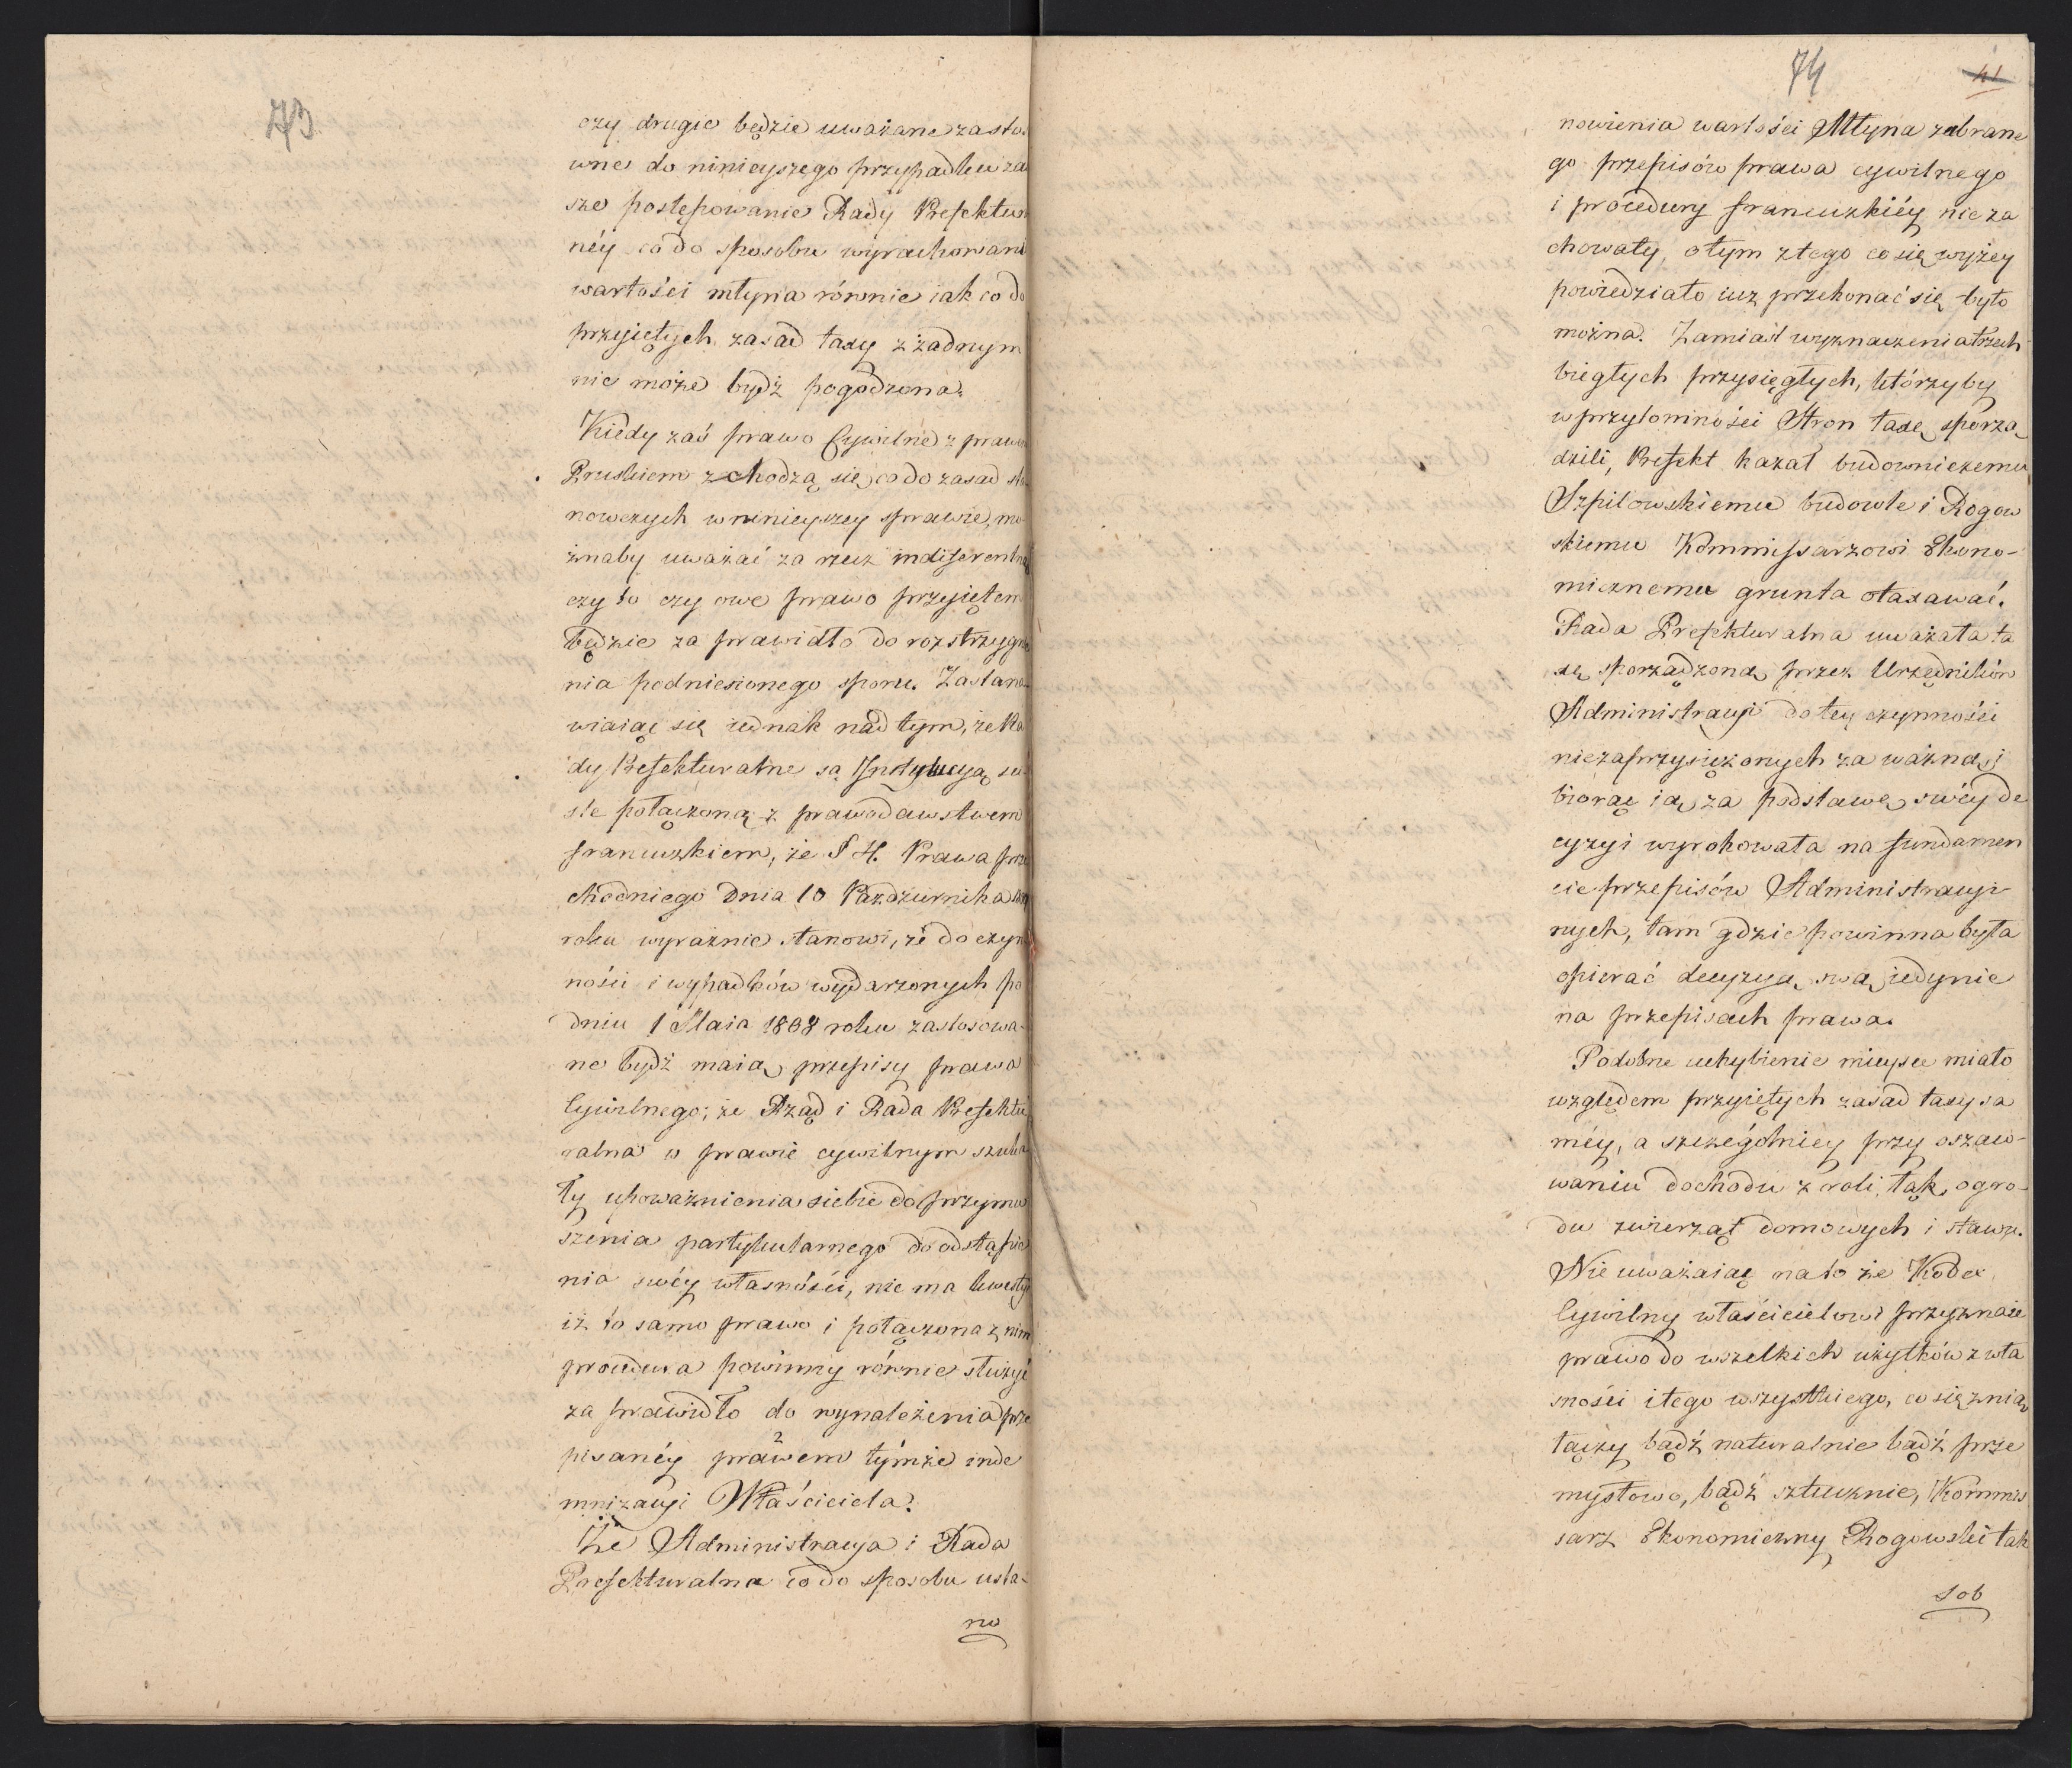 73
czy drugie będzie uważane za sto
wne do ninieyszego przypadku za
sze postępowanie Rady Prefektu
ney co do sposobu wyrachowani
wartości młyna równie iak co do
przyiętych zasad taxy z żadnym
nie może bydź pogodzona.
Kiedy zaś prawo Cywilne z prawe
Pruskiem zchodzą się co do zasad sta
nowczych w ninieyszey sprawie, mo
żnaby uważać za rzecz indiferentną
czy to czy owe prawo przyiętem
będzie za prawidło do rozstrzygnie
nia podniesionego sporu. Zastana
wiaiąc się iednak nad tym, że Ra
dy Prefekturalne są Instytucyą ści
śle połączoną z prawodawstwem
francuzkiem, że § 4. Prawa prze
chodniego Dnia 10 Października
roku wyraźnie stanowi, że do czyn
ności i wypadków wydarzonych po
dniu 1 Maia 1808 roku zastosowa-
ne bydź maią przepisy prawa
Cywilnego; że Rząd i Rada Prefektu
ralna w prawie cywilnym szuka
ły upoważnienia siebie do przymu
szenia partykularnego do odstąpie
nia swéy własności, nie ma kwestyi
iż to samo prawo i połączona z nim
procedura powinny równie służyć
za prawidło do wynalezienia prze
pisanéy prawem tymże inde
mnizacyi Właściciela.
Że Administracya i Rada
Prefekturalna co do sposobu usta-
no
74
41
nowienia wartości Młyna zabrane
go przepisów prawa cywilnego
i procedury francuzkiéy nie za
chowały, o tym z tego co się wyżey
powiedziało iuz przekonać się było
można. Zamiast wyznaczenia trzech
biegłych przysięgłych, którzyby
w przytomności Stron taxę sporzą
dzili, Prefekt kazał budowniczemu
Szpilowskiemu budowle i Rogow
skiemu Kommissarzowi Ekono-
micznemu grunta otaxawać.
Rada Prefekturalna uważała ta
xę sporządzoną przez Urzędników
Administracyi do tey czynności
niezaprzysiężonych za ważną i
biorąc ią za podstawę swéy de
cyzyi wyrokowała na fundamen
cie przepisów Administracyi
nych, tam gdzie powinna była
opierać decyzyą swą iedynie
na przepisach prawa.
Podobne uchybienie mieysce miało
względem przyiętych zasad taxy sa
méy, a szczególniey przy oszaw-
waniu dochodu z roli, łąk, ogro-
du zwierząt domowych i stawu.
Nie uważaiąc na to że Kodex
Cywilny właścicielowi przyznaie
prawo do wszelkich użytków z wła
sności i tego wszystkiego, co się z nią
łączy bądź naturalnie bądź prze
mysłowo, bądź sztucznie, Kommis
sarz Ekonomiczny Rogowski tak
sob